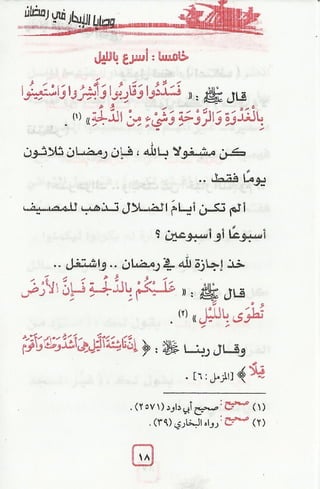 وصايا الإبحار في رمضان
خامسا : أسرع بالليل
قال ﷺ : « فَسَدِّدُوا وَقَارِبُوا وَأَبْشِرُوا وَاسْتَعِينُوا
بِالْغَدْوَةِ وَالرَّوْحَةِ وَشَيْءٍ مِنَ الدُّلْجَةِ » (١) .
كن مشغولا بالله ، فإن رمضان ثلاثون
يومًا فقط ..
ألم تكن أيامَ الضلال تذهب للمصيف
أسبوعًا أو أسبوعين ؟
خذ إجازة لله في رمضان .. واشتغل ..
قال ﷺ : « عَلَيْكُمْ بِالدُّلْجَةِ فَإِنَّ الْأَرْضَ
تُطْوَى بِاللَّيْلِ » (٢) .
وقال ربنا ﷻ : ﴿ إِنَّ نَاشِئَةَ اللَّيْلِ هِيَ أَشَدُّ وَطْئًا وَأَقْوَمُ
قِيلًا ﴾ [المزمل : ٦] .
(١) صحيح : صحيح أبي داود (٢٥٧١) .
(٢) صحيح : رواه البخاري (٣٩) .
١٨